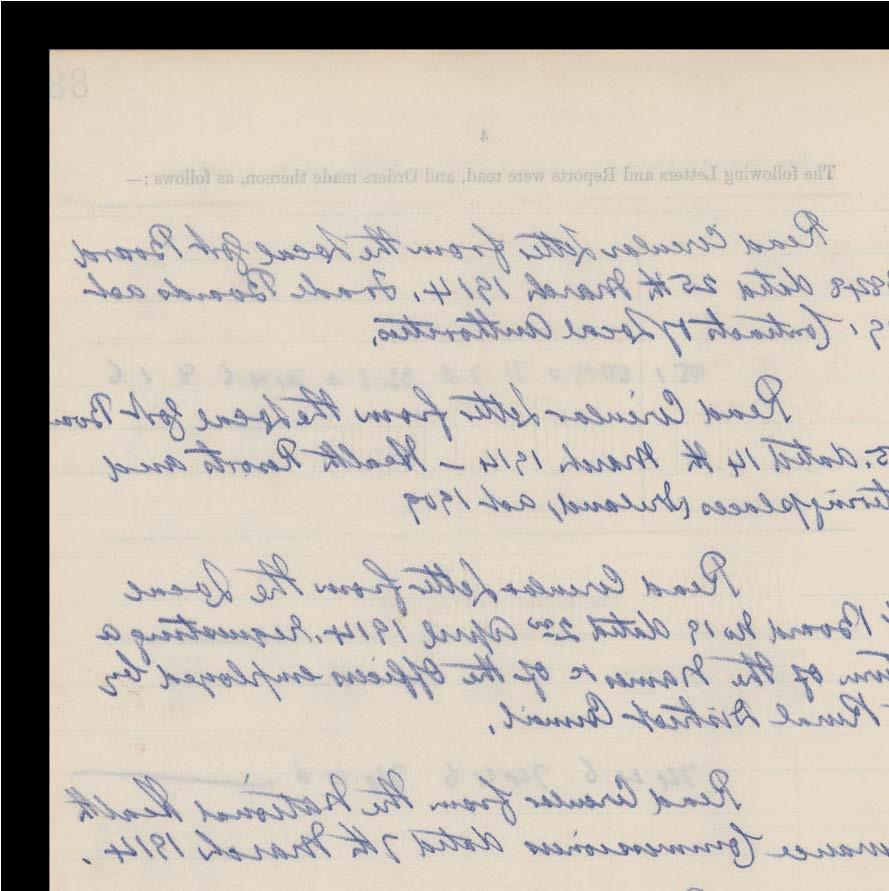 88
4
The following Letters and Reports were read, and Orders made thereon, as follows :—
Read Circular Letter from the Local Gov't Board
8248 dated 25th March 1914, Trade Boards act
9' Contracts of Local Authorities.
Read Circular Letter from the Local Gov't Boar
5. dated 14th March 1914 – Health Resorts and
tering places (Ireland) act 1909
Read Circular Letter from the Local
Board No 19 dated 2nd April 1914, requesting a
of the Names &c of the Officers employed by
Rural District Council.
Read Circular from the National Health
urance Commissioners dated 7th March 1914.